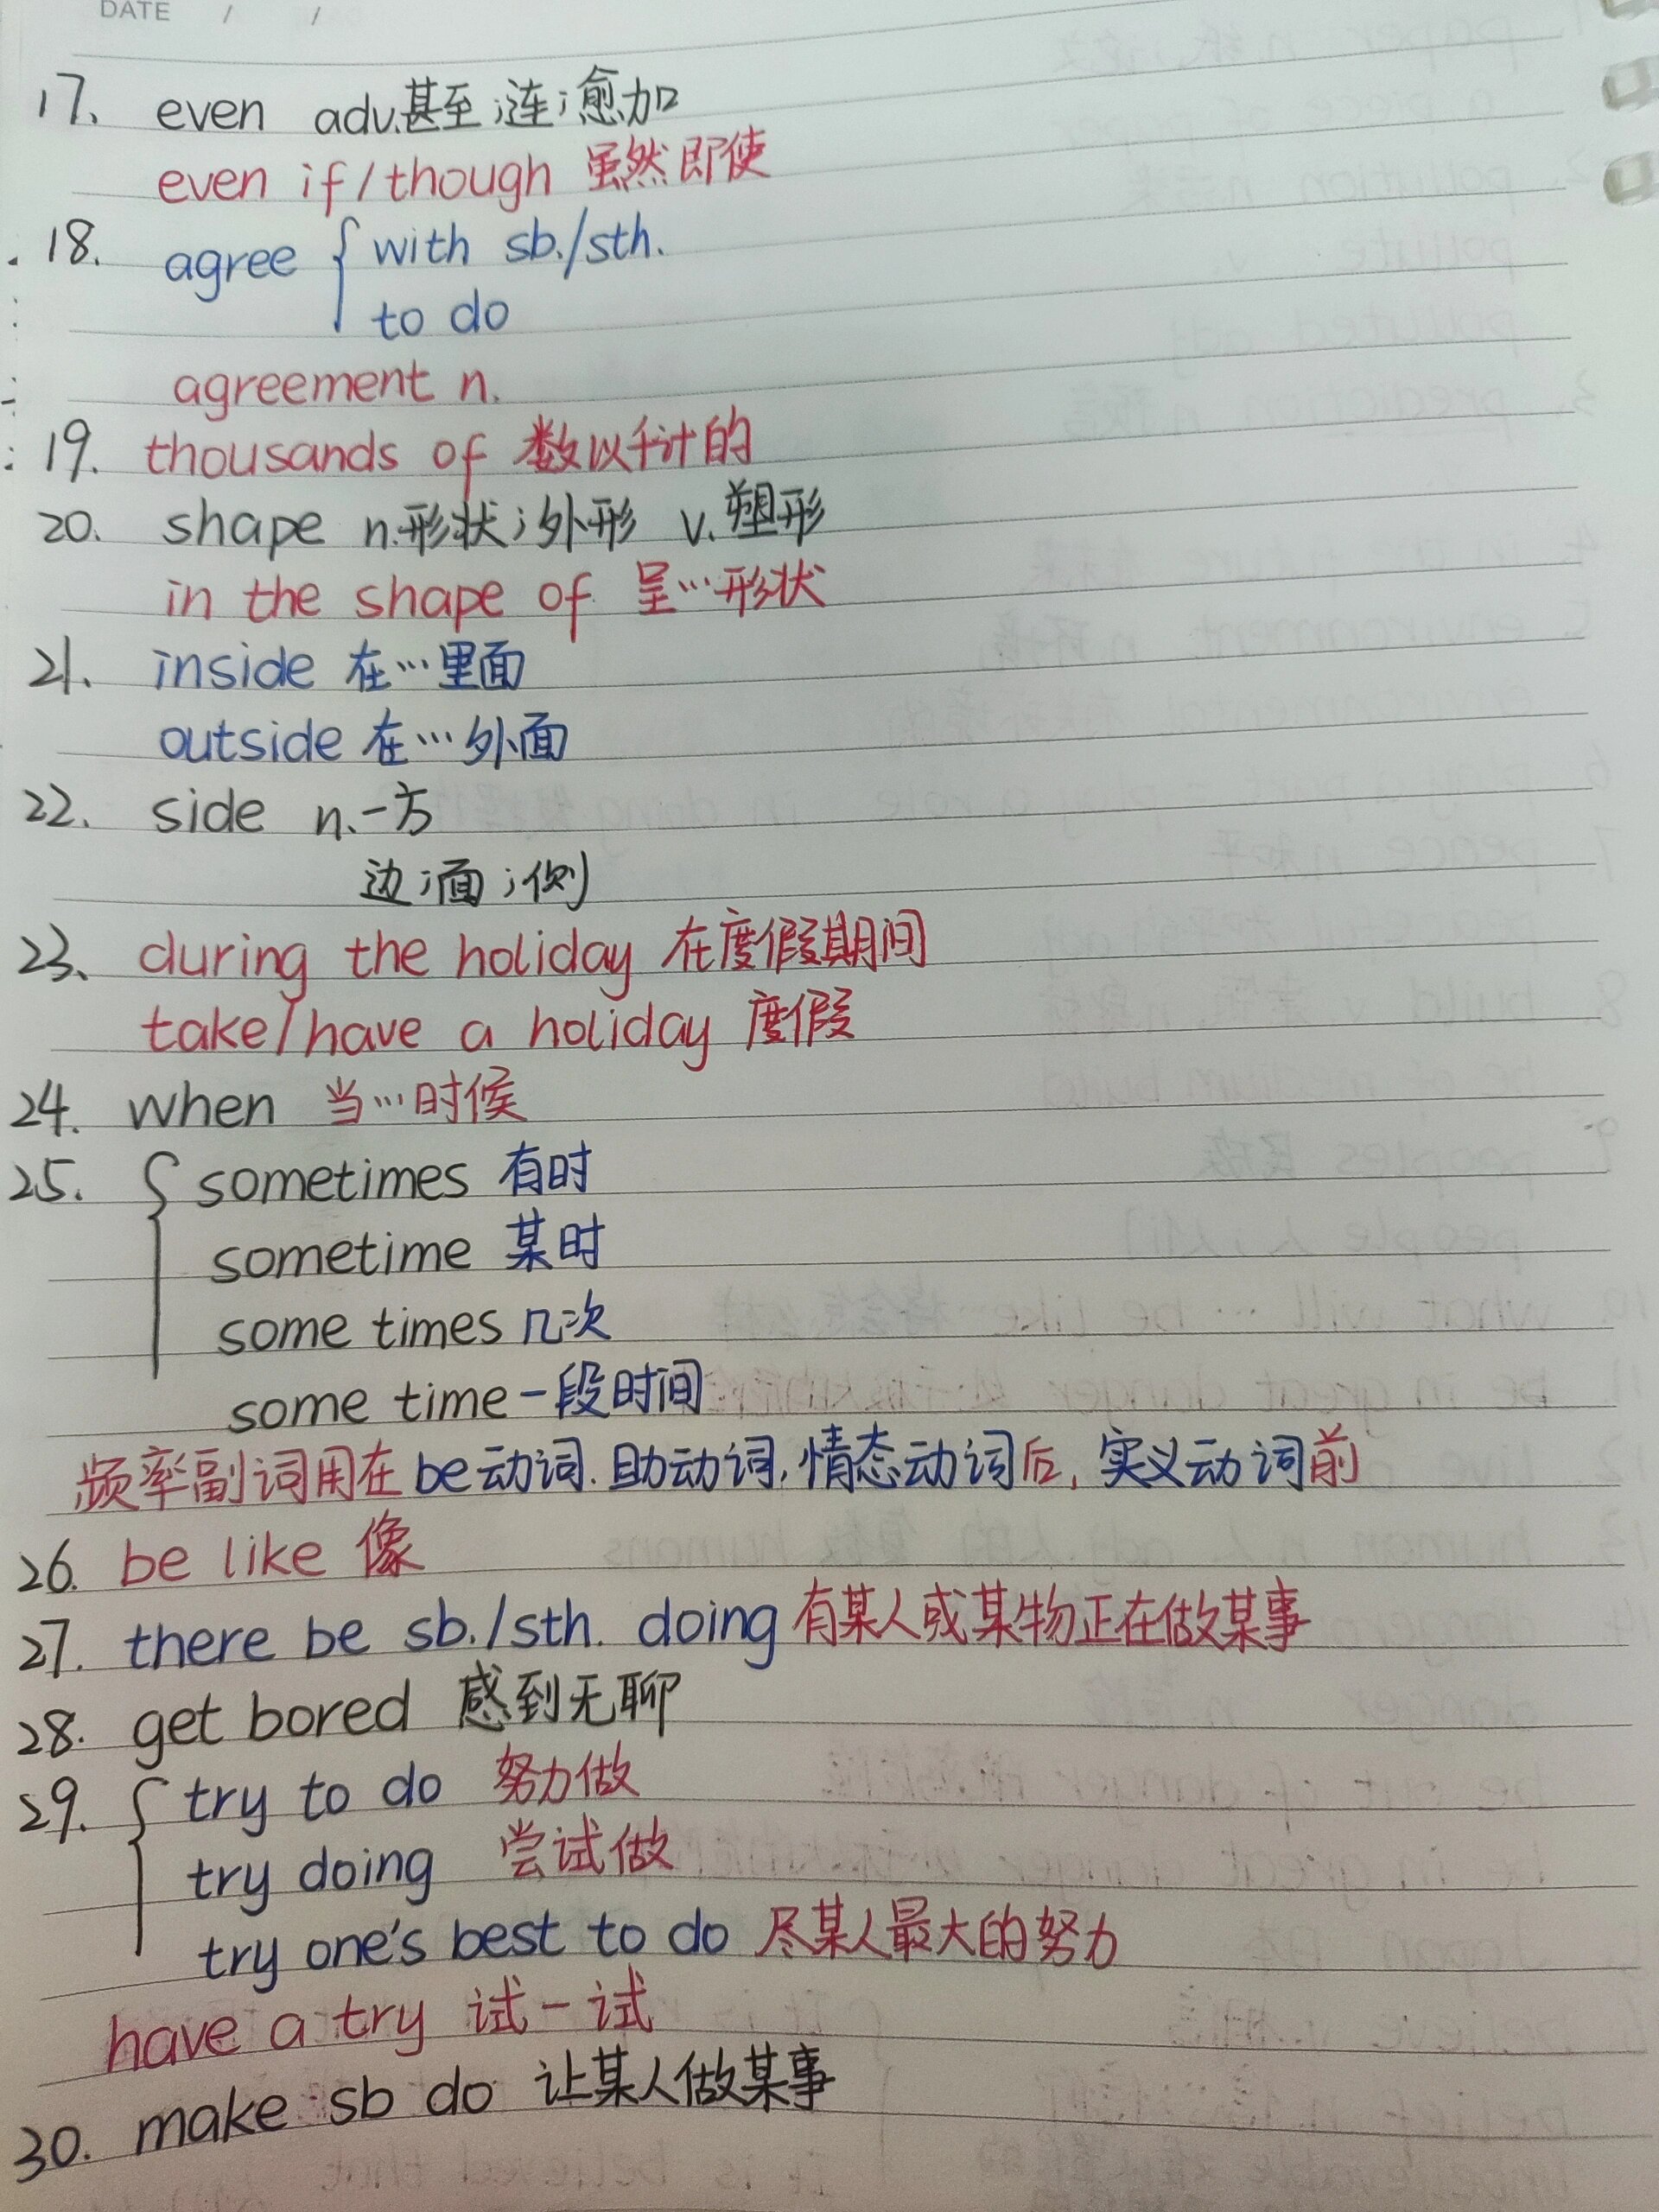 DATE / /
17. even adv.甚至;连;愈加
even if/though 虽然即使
18. agree { with sb./sth.
to do
agreement n.
19. thousands of 数以千计的
20. shape n.形状;外形 v.塑形
in the shape of 呈…形状
21. inside 在…里面
outside 在…外面
22. side n.一方
边;面;侧
23、during the holiday 在度假期间
take/have a holiday 度假
24. when 当…时候
25. { sometimes 有时
sometime 某时
some times 几次
some time 一段时间
频率副词用在be动词.助动词,情态动词后,实义动词前
26. be like 像
27. there be sb./sth. doing 有某人或某物正在做某事
28. get bored 感到无聊
29. { try to do 努力做
try doing 尝试做
try one's best to do 尽某人最大的努力
have a try 试一试
30. make sb do 让某人做某事